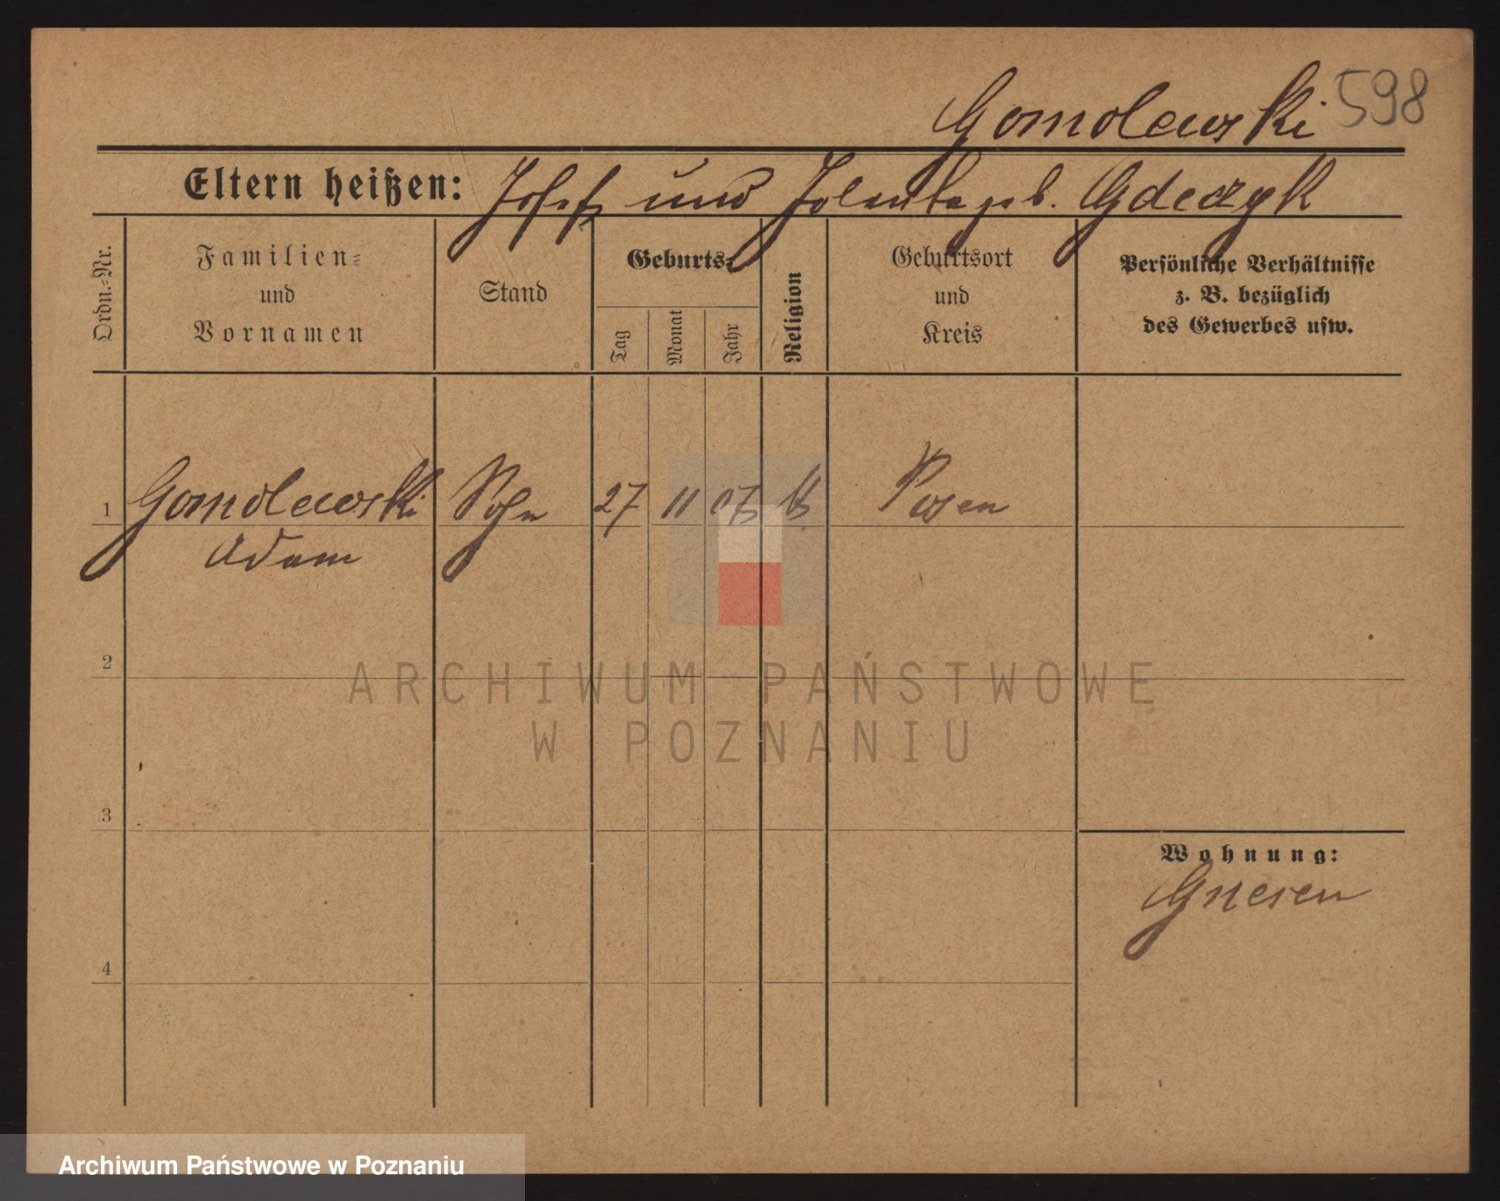 Gomolewski 598
Eltern heißen: Josef und Jolenta geb. Gdeczyk
Ordn.-Nr.
Familien-
und
Vornamen
Stand
Geburts-
Tag
Monat
Jahr
Religion
Geburtsort
und
Kreis
Persönliche Verhältnisse
z. B. bezüglich
des Gewerbes usw.
1 Gomolewski Sohn 27 11 07 Posen
Adam
2
3
Wohnung:
Gnesen
4
ARCHIWUM PAŃSTWOWE
W POZNANIU
Archiwum Państwowe w Poznaniu